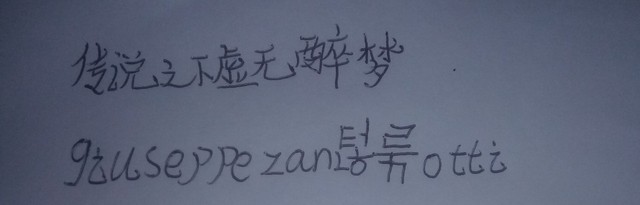 传说之下虚无醉梦
giuseppezan텀블류otti